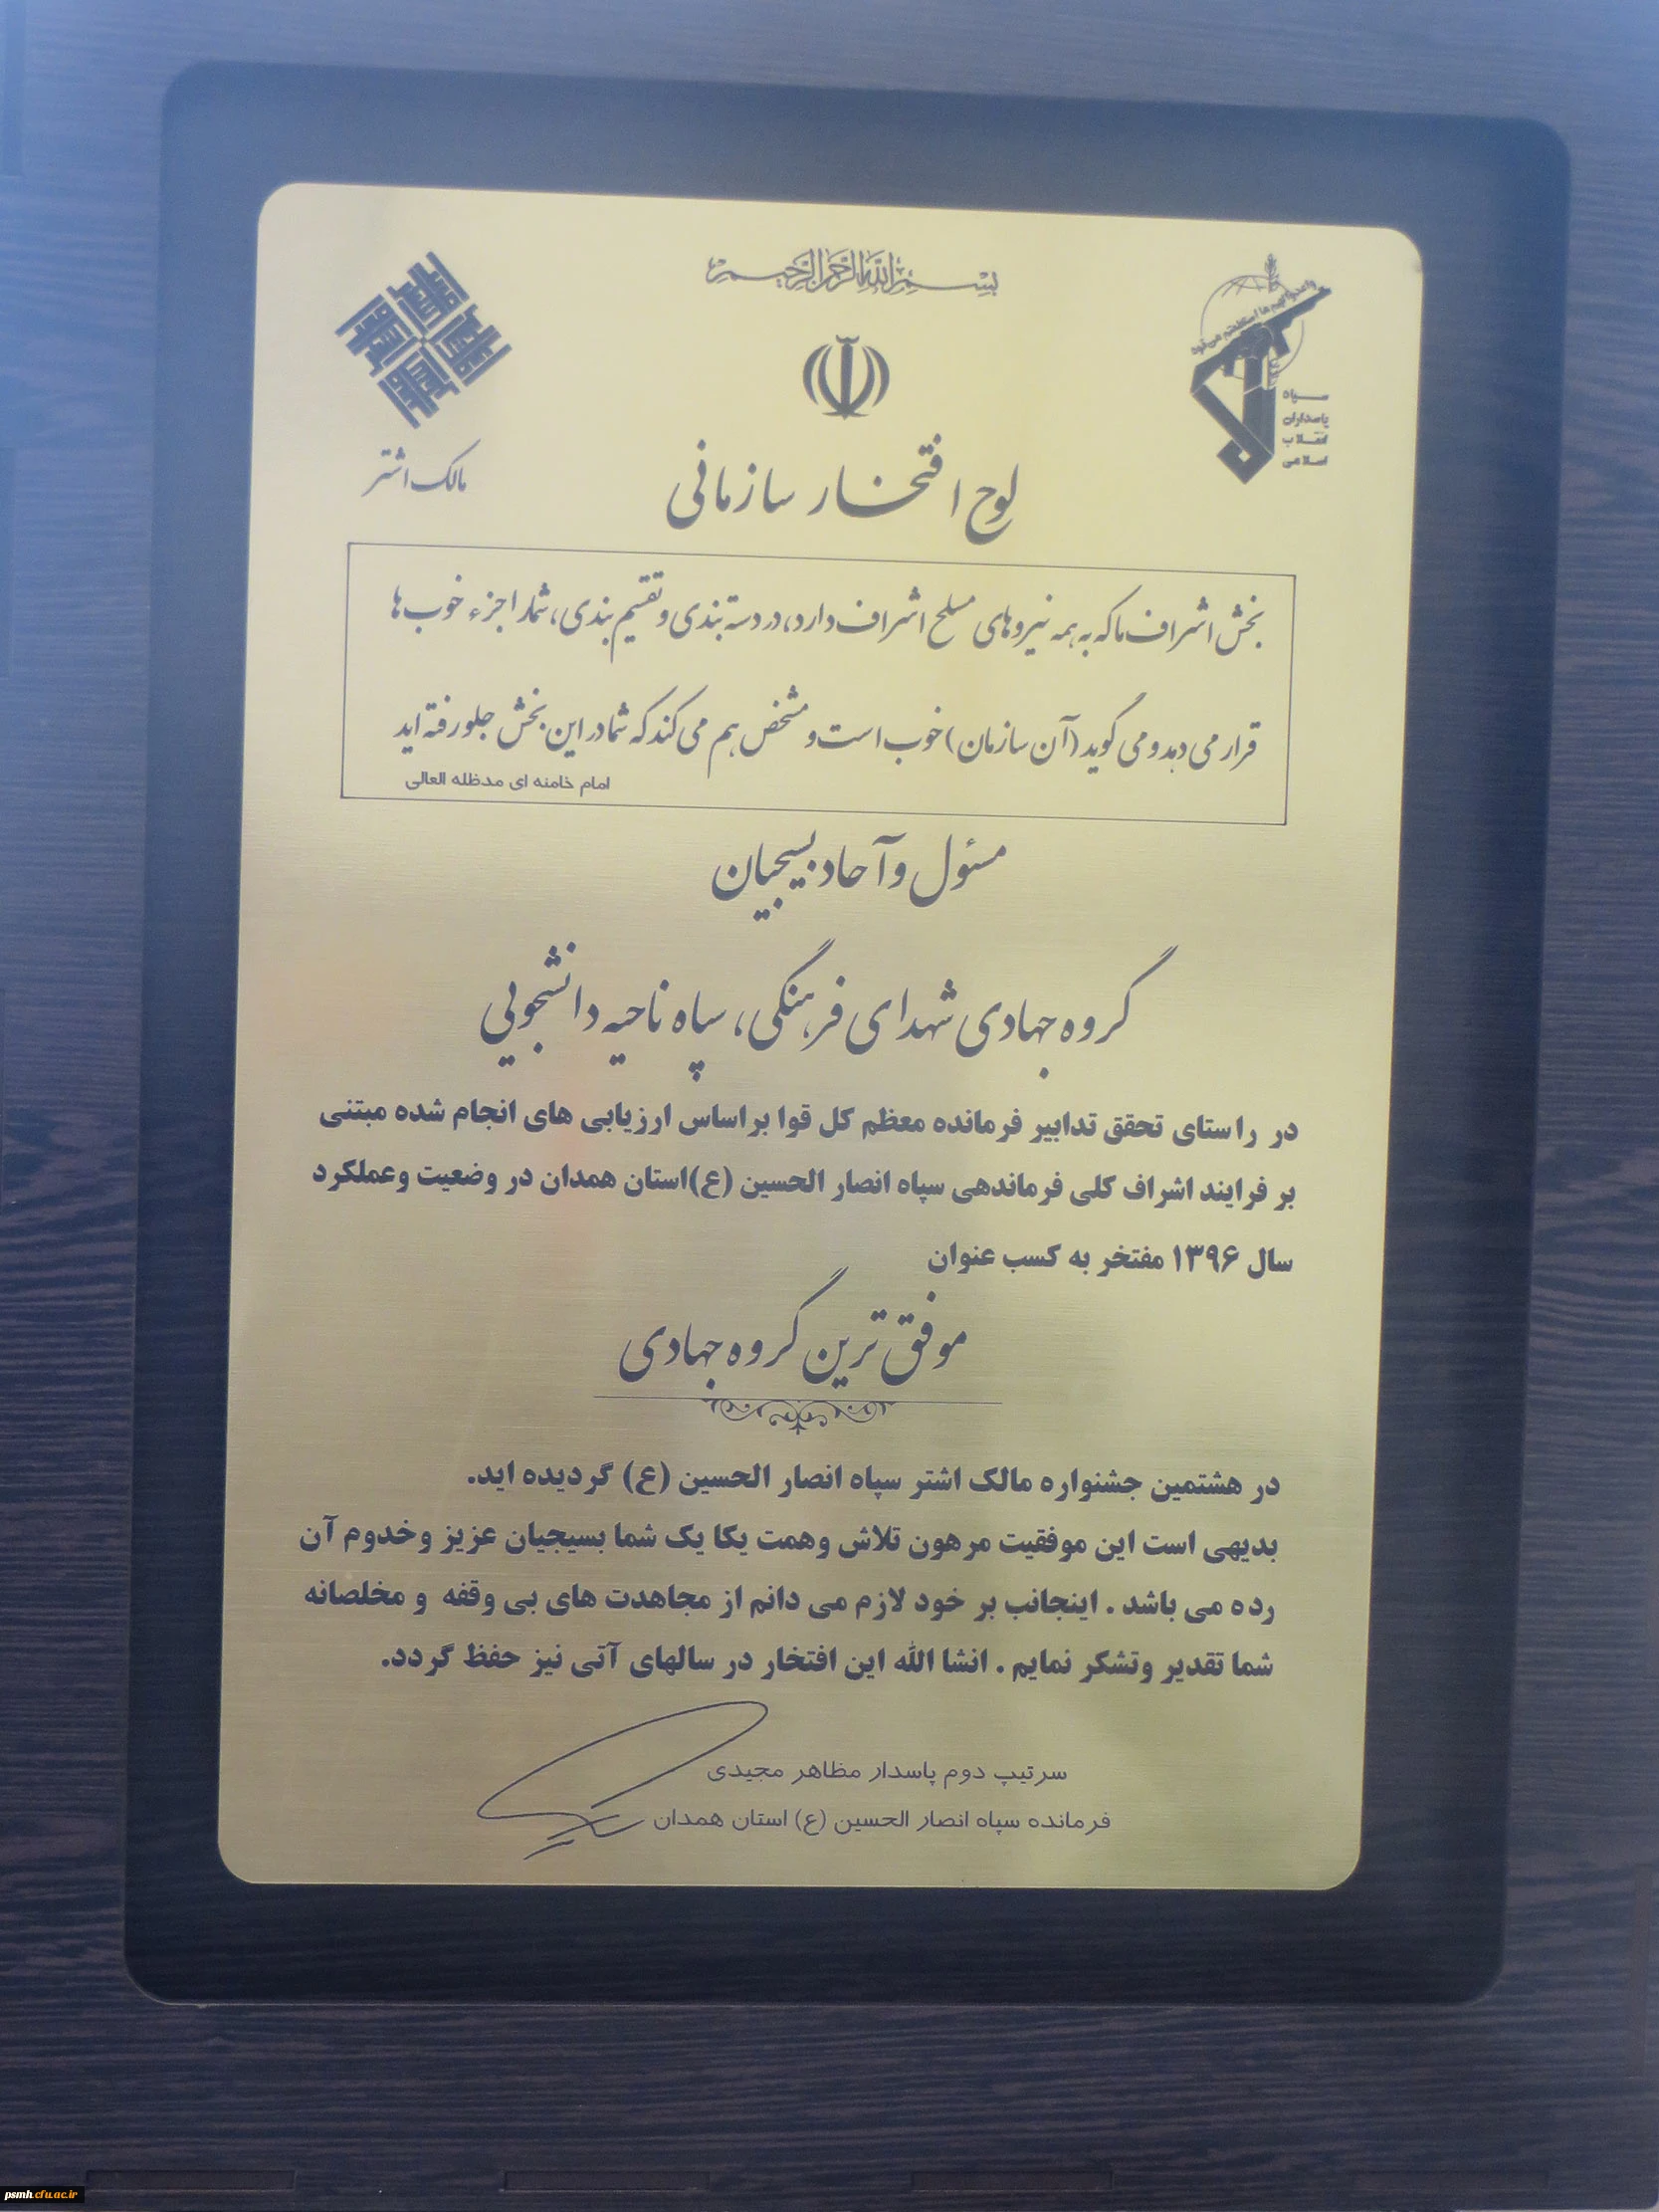 بسم الله الرحمن الرحیم
واعدوا لهم ما استطعتم من قوة
سپاه
پاسداران
انقلاب
اسلامی
مالک اشتر
لوح افتخار سازمانی
بخش اشراف ما که به همه نیروهای مسلح اشراف دارد، در دسته بندی و تقسیم بندی، شما را جزء خوب ها
قرار می دهد و می گوید (آن سازمان) خوب است و مشخص هم می کند که شما در این بخش جلو رفته اید
امام خامنه ای مدظله العالی
مسئول و آحاد بسیجیان
گروه جهادی شهدای فرهنگی، سپاه ناحیه دانشجویی
در راستای تحقق تدابیر فرمانده معظم کل قوا براساس ارزیابی های انجام شده مبتنی
بر فرایند اشراف کلی فرماندهی سپاه انصار الحسین (ع)استان همدان در وضعیت وعملکرد
سال ۱۳۹۶ مفتخر به کسب عنوان
موفق ترین گروه جهادی
در هشتمین جشنواره مالک اشتر سپاه انصار الحسین (ع) گردیده اید.
بدیهی است این موفقیت مرهون تلاش وهمت یکا یک شما بسیجیان عزیز وخدوم آن
رده می باشد . اینجانب بر خود لازم می دانم از مجاهدت های بی وقفه و مخلصانه
شما تقدیر وتشکر نمایم . انشا الله این افتخار در سالهای آتی نیز حفظ گردد.
سرتیپ دوم پاسدار مظاهر مجیدی
فرمانده سپاه انصار الحسین (ع) استان همدان
psmh.cfu.ac.ir